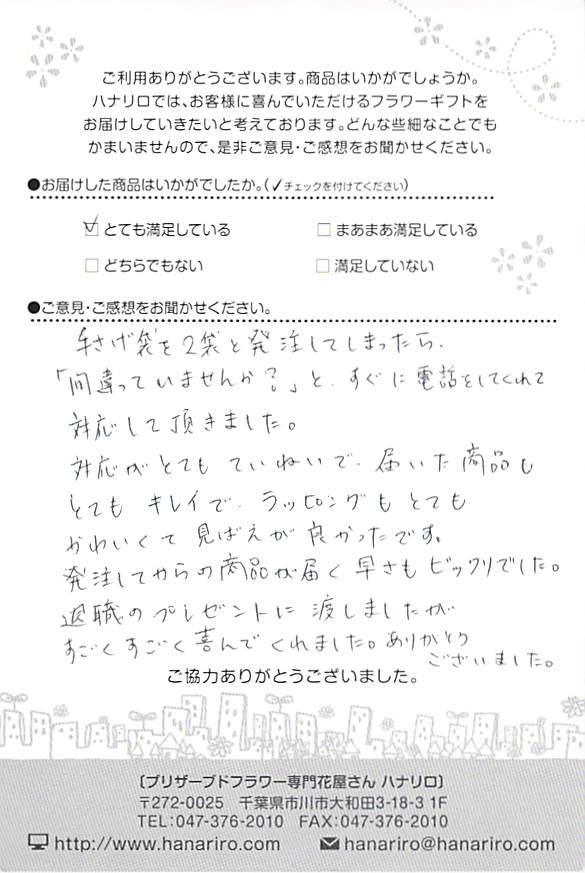 ご利用ありがとうございます。商品はいかがでしょうか。
ハナリロでは、お客様に喜んでいただけるフラワーギフトを
お届けしていきたいと考えております。どんな些細なことでも
かまいませんので、是非ご意見・ご感想をお聞かせください。
●お届けした商品はいかがでしたか。(✓チェックを付けてください)
☑とても満足している □まあまあ満足している
□どちらでもない □満足していない
●ご意見・ご感想をお聞かせください。
手さげ袋を2袋と発注してしまったら、
「間違っていませんか?」と、すぐに電話をしてくれて
対応して頂きました。
対応がとてもていねいで、届いた商品も
とてもキレイで、ラッピングもとても
かわいくて見ばえが良かったです。
発注してからの商品が届く早さもビックリでした。
退職のプレゼントに渡しましたが
すごくすごく喜んでくれました。ありがとう
ございました。
ご協力ありがとうございました。
〔プリザーブドフラワー専門花屋さん ハナリロ〕
〒272-0025 千葉県市川市大和田3-18-3 1F
TEL:047-376-2010 FAX:047-376-2010
http://www.hanariro.com hanariro@hanariro.com